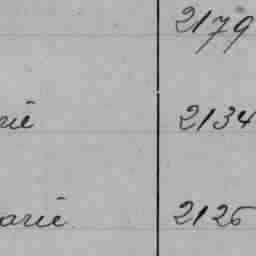 2179
rie 2134
arie 2126